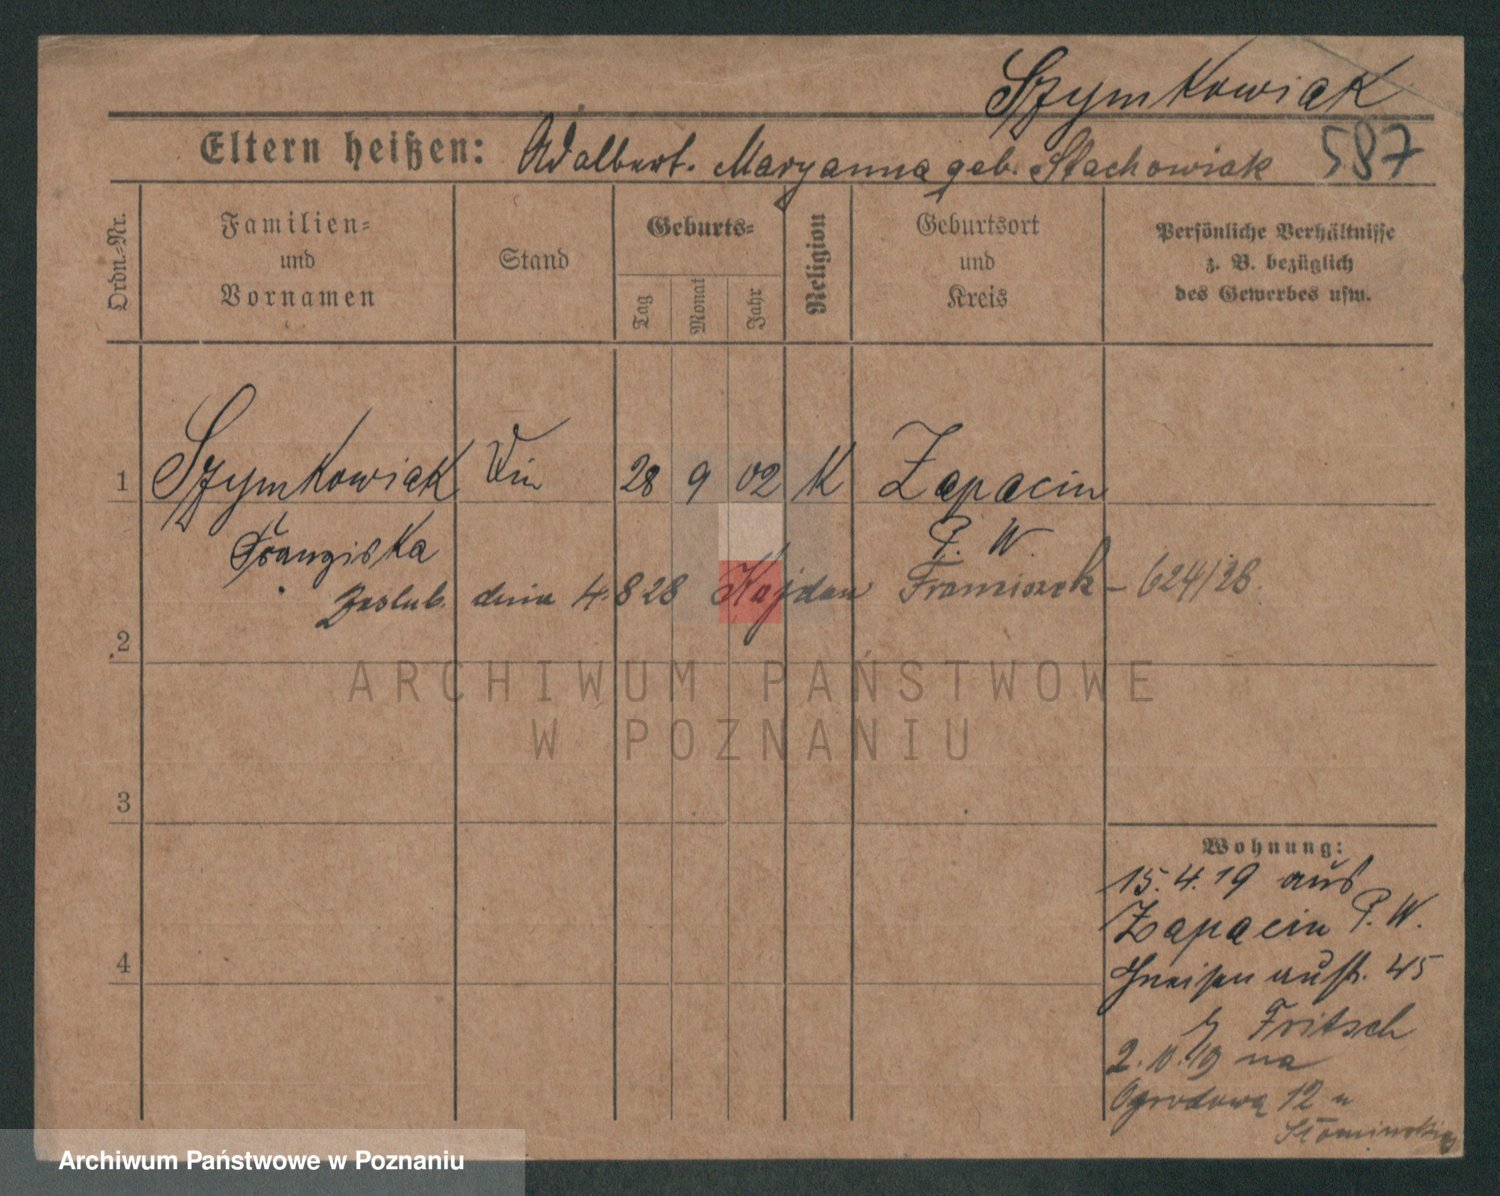 Szymkowiak
587
Eltern heißen: Adalbert. Maryanna geb. Stachowiak
Ordn.-Nr.
Familien-
und
Vornamen
Stand
Geburts-
Tag
Monat
Jahr
Religion
Geburtsort
und
Kreis
Persönliche Verhältnisse
z. B. bezüglich
des Gewerbes usw.
1 Szymkowiak 28 9 02 K Zapacin
Franziska P. W.
Zaslub. dnia 4.8 28 Kajdan Franciszek - 624/28.
2
ARCHIWUM PAŃSTWOWE
W POZNANIU
3
4
Wohnung:
15.4.19 aus
Zapacin P. W.
Gneisenaustr. 45
Fritsch
2.10.19 na
Ogrodową 12 u
Archiwum Państwowe w Poznaniu